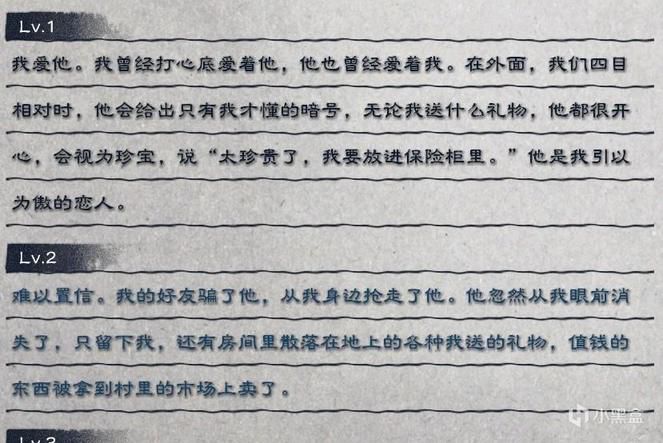 Lv.1
我爱他。我曾经打心底爱着他，他也曾经爱着我。在外面，我们四目
相对时，他会给出只有我才懂的暗号，无论我送什么礼物，他都很开
心，会视为珍宝，说“太珍贵了，我要放进保险柜里。”他是我引以
为傲的恋人。
Lv.2
难以置信。我的好友骗了他，从我身边抢走了他。他忽然从我眼前消
失了，只留下我，还有房间里散落在地上的各种我送的礼物，值钱的
东西被拿到村里的市场上卖了。
Lv.3
小黑盒